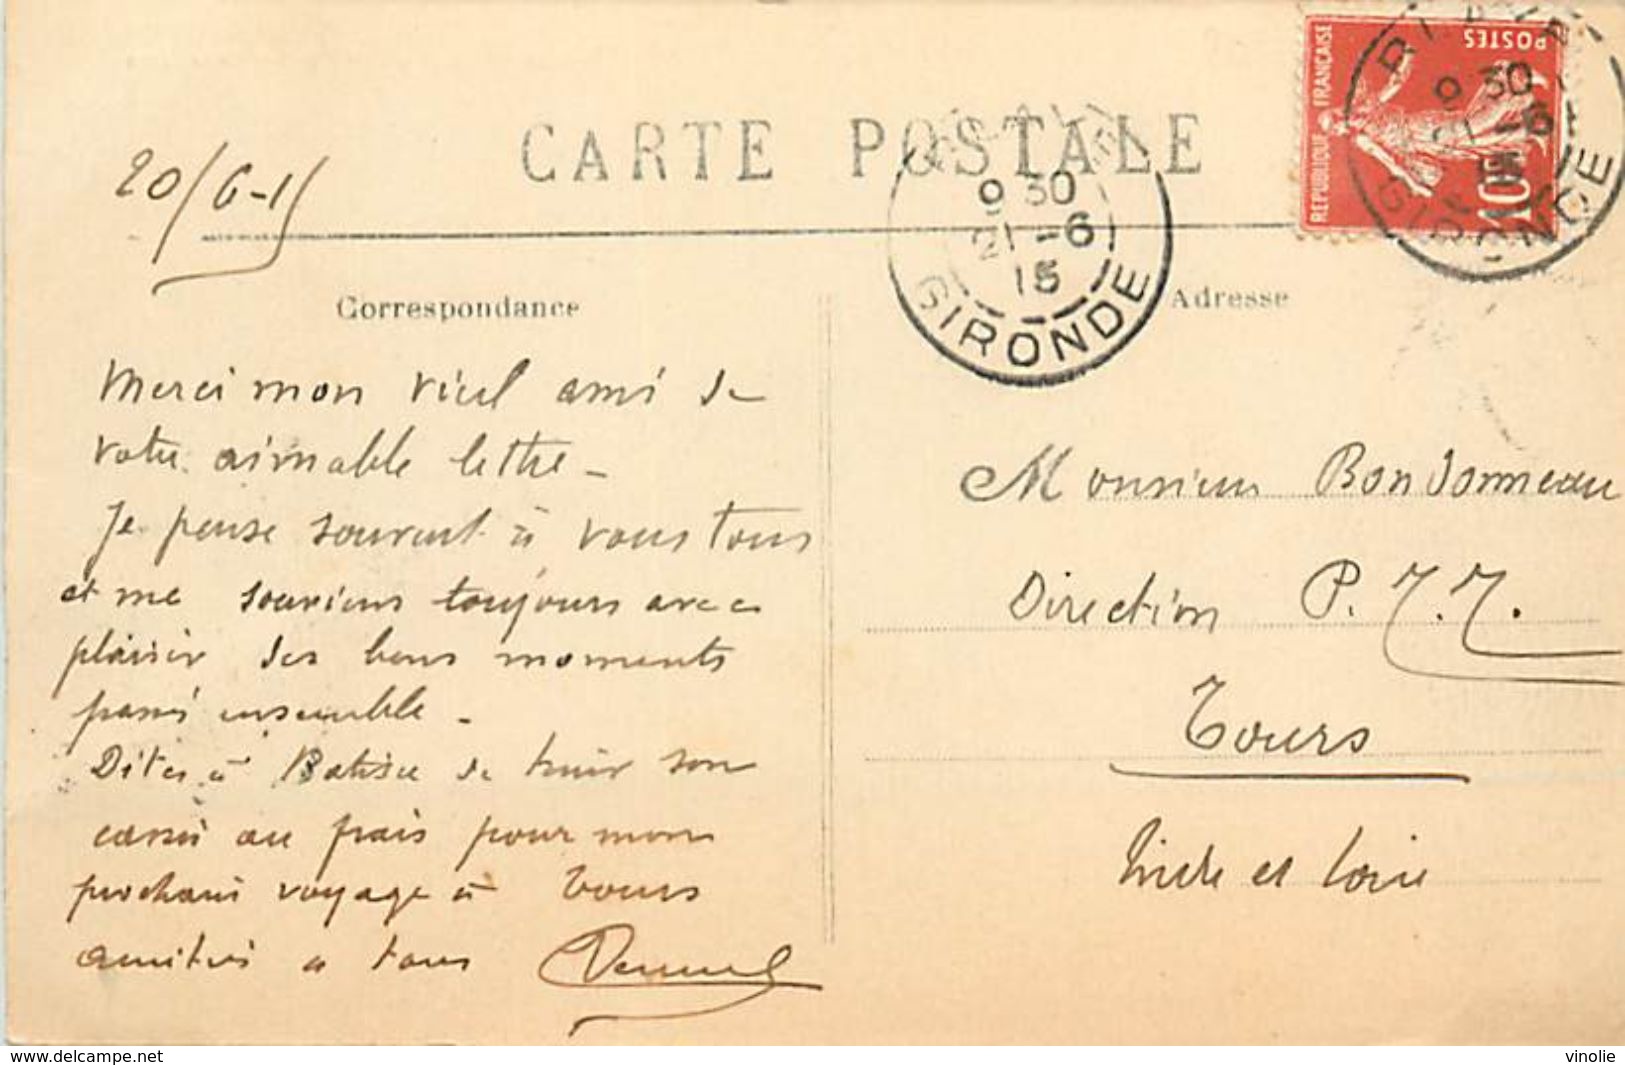 20/6-15
CARTE POSTALE
REPUBLIQUE FRANÇAISE
POSTES
10
9 30
21 -6
15
GIRONDE
9 30
21 -6
15
GIRONDE
Correspondance
Adresse
Merci mon vieil ami de
votre aimable lettre -
Je pense souvent à vous tous
et me souviens toujours avec
plaisir des bons moments
passés ensemble -
Dites à de tenir son
cassis au frais pour mon
prochain voyage à Tours
amitiés à tous
Monsieur Bondonneau
Direction P. T. T.
Tours
Indre et Loire
www.delcampe.net
vinolie